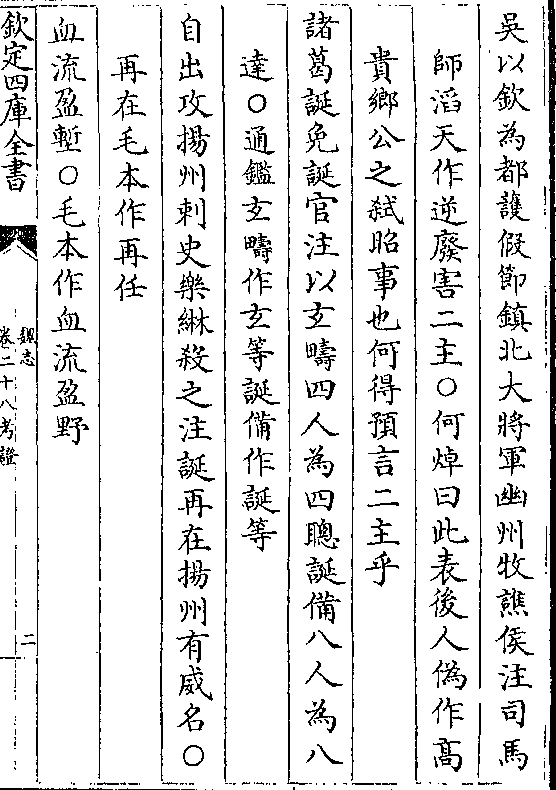 吳以欽為都護假節鎮北大將軍幽州牧譙侯注司馬
師滔天作逆廢害二主○何焯曰此表後人偽作高
貴鄉公之弑昭事也何得預言二主乎
諸葛誕免誕官注以玄疇四人為四聰誕備八人為八
達○通鑑玄疇作玄等誕備作誕等
自出攻揚州刺史樂綝殺之注誕再在揚州有威名○
再在毛本作再任
血流盈塹○毛本作血流盈野
欽定四庫全書
魏志
卷二十八考證
二